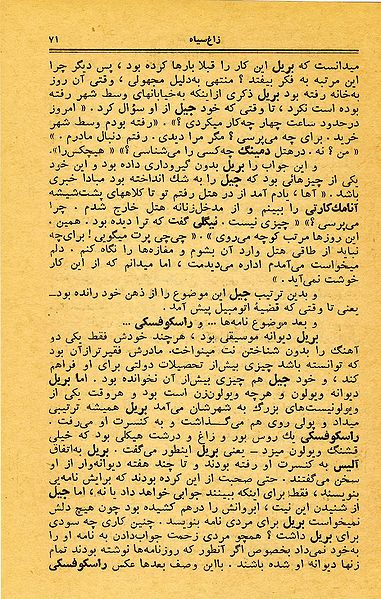 زاغ‌سیاه ۷۱
میدانست که بریل این کار را قبلا بارها کرده بود ، پس دیگر چرا
این مرتبه به فکر بیفتد ؟ منتهی به‌دلیل مجهولی ، وقتی آن روز
به‌خانه رفته بود بریل ذکری ازاینکه به‌خیابانهای وسط شهر رفته
بوده است نکرد ، تا وقتی که خود جیل از او سؤال کرد . « امروز
درحدود ساعت چهار چه‌کار میکردی ؟» . «رفته بودم وسط شهر
خرید . برای چه می‌پرسی ؟ مگر مرا دیدی . رفتم دنبال مادرم . »
« من ؟ نه . درهتل دمینگ چه‌کسی را می‌شناسی ؟» « هیچکس‌را».
و این جواب را بریل بدون گیروداری داده بود و این خود
یکی از چیزهائی بود که جیل را به شك انداخته بود مبادا خبری
باشد . « آها ، یادم آمد از در هتل رفتم تو تا کلاههای پشت‌شیشه
آنامك‌کارتی را ببینم و از مدخل‌زنانه هتل خارج شدم . چرا
می‌پرسی ؟» « چیزی نیست . نیگلی گفت که ترا دیده بود . همین .
این روزها مرتب کوچه می‌روی » « چی‌چی پرت میگویی ! برای‌چه
نباید از طاقی هتل وارد آن بشوم و مغازه‌ها را نگاه کنم . دلم
میخواست می‌آمدم اداره می‌دیدمت ، اما میدانم که از این کار
خوشت نمی‌آید . »
و بدین ترتیب جیل این موضوع را از ذهن خود رانده بود ــ
یعنی تا وقتی که قضیهٔ اتومبیل پیش آمد .
و بعد موضوع نامه‌ها ... و راسکوفسکی ...
بریل دیوانه موسیقی بود ، هرچند خودش فقط یکی دو
آهنگ را بدون شناختن نت مینواخت. مادرش فقیرترازآن بود
که توانسته باشد چیزی بیش‌از تحصیلات دولتی برای او فراهم
کند ، و خود جیل هم چیزی بیش‌از آن نخوانده بود . اما بریل
دیوانه ویولون و هرچه ویولون‌زن است بود و هروقت یکی از
ویولونیست‌های بزرگ به شهرشان می‌آمد بریل همیشه ترتیبی
میداد و پولی روی هم می‌گــذاشت و به کنسرت او می‌رفت .
راسکوفسکی یك روس بور و زاغ و درشت هیکلی بود که خیلی
قشنگ ویولون میزد ــ یعنی بریل اینطور می‌گفت . بریل به‌اتفاق
آلیس به کنسرت او رفته بودند و تا چند هفته دیوانه‌وار از او
سخن می‌گفتند . حتی صحبت از این کرده بودند که برایش نامه‌یی
بنویسند ، فقط برای اینکه ببینند جوابی خواهد داد یا نه ، اما جیل
از شنیدن این نیت ، ابروانش را درهم کشیده بود چون هیچ دلش
نمیخواست بریل برای مردی نامه بنویسد . چنین کاری چه سودی
برای بریل داشت ؟ همچو مردی زحمت جواب‌دادن به نامه او را
به‌خود نمی‌داد بخصوص اگر آنطور که روزنامه‌ها نوشته بودند تمام
زنها دیوانه او شده باشند . بااین وصف بعدها عکس راسکوفسکی